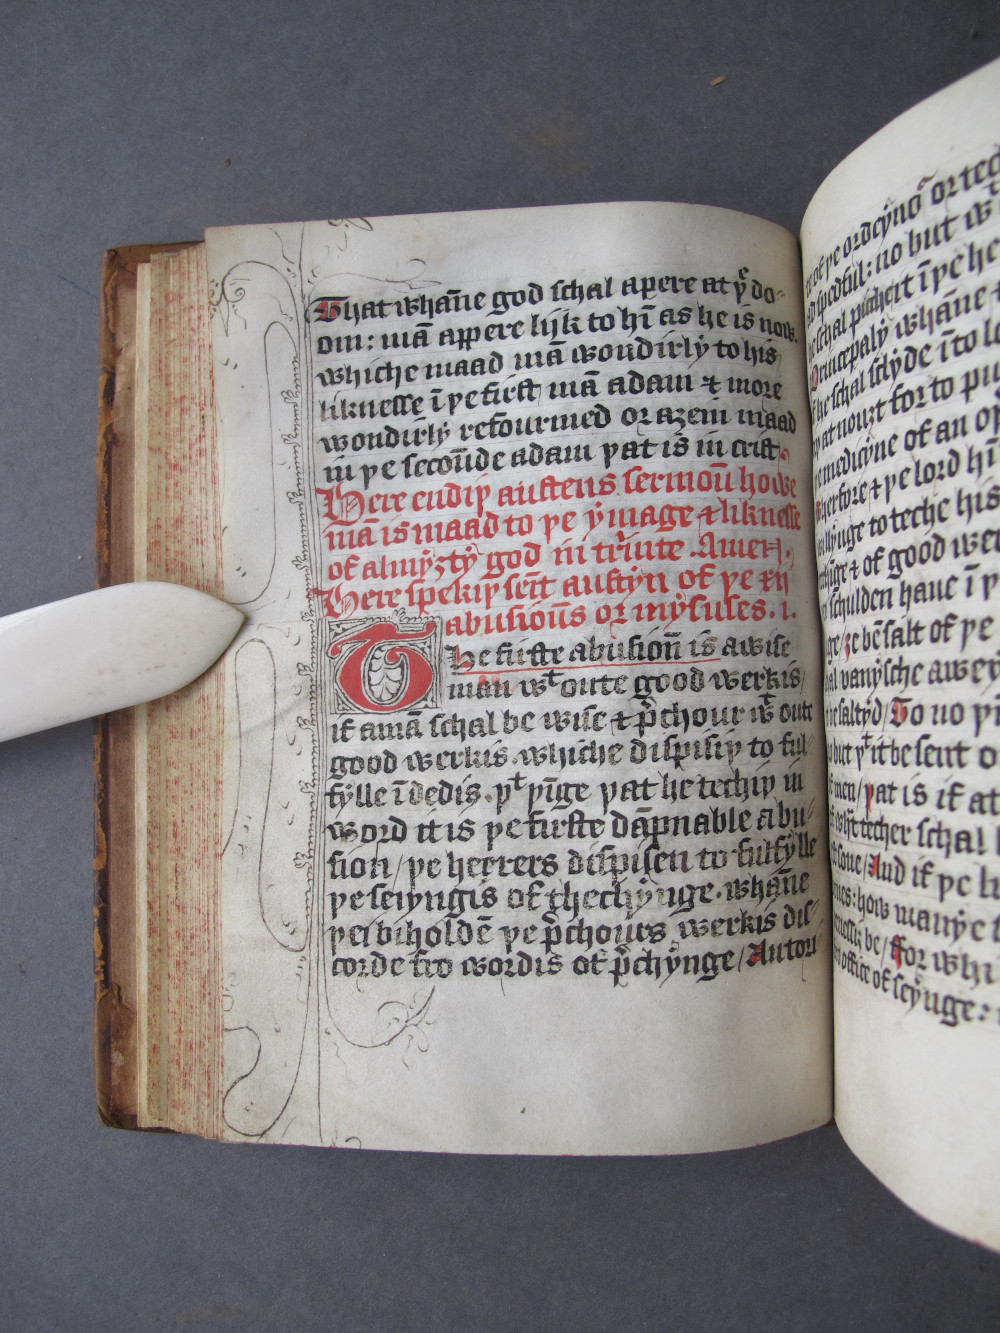 That whāne god schal apere at yͤ do⸗
om: mā appere lijk to hī as he is now.
whiche maad mā wondirly to his
liknesse ī ye first mā adam ⁊ more
wondirly refourmed or azein maad
in ye secoūde adam yat is in crist.
Here endiy austens sermoū howe
mā is maad to ye ymage ⁊ liknesse
of almyzty god in trinite. Amen.
Here spekiy seīt austyn of ye xii
abusiouns or mysuses. i.
The firste abusioū is a wise
man wͭ oute good werkis/
if a mā schal be wise ⁊ p̄chour wͭ oute
good werkis. whiche dispisiy to ful⸗
fylle ī dedis. yͭ yīge yat he techiy in
word it is ye firste dāpnable abu⸗
sion/ ye heerers dispisen to fulfylle
ye seiyngis of thechynge. whāne
yei biholdē ye p̄chours werkis dis⸗
corde fro wordis of p̄chynge/ Autori
of ye ordeynō or tec
spedful: no but wͭ
he schal puchert ī ye he
Princepaly whāne
he schal sclyde ī to
yat nouzt for to pu
medicyne of an
herfore ⁊ ye lord hī
to teche his
⁊ of good wer
schulden haue ī y
ze bē salt of ye
schal vanysche awey
be saltyd/ To no
but yͭ it be sent o
men/ yat is if at
techer schal
And if ye li
how manye
be/ ffor whi
office of seynge: